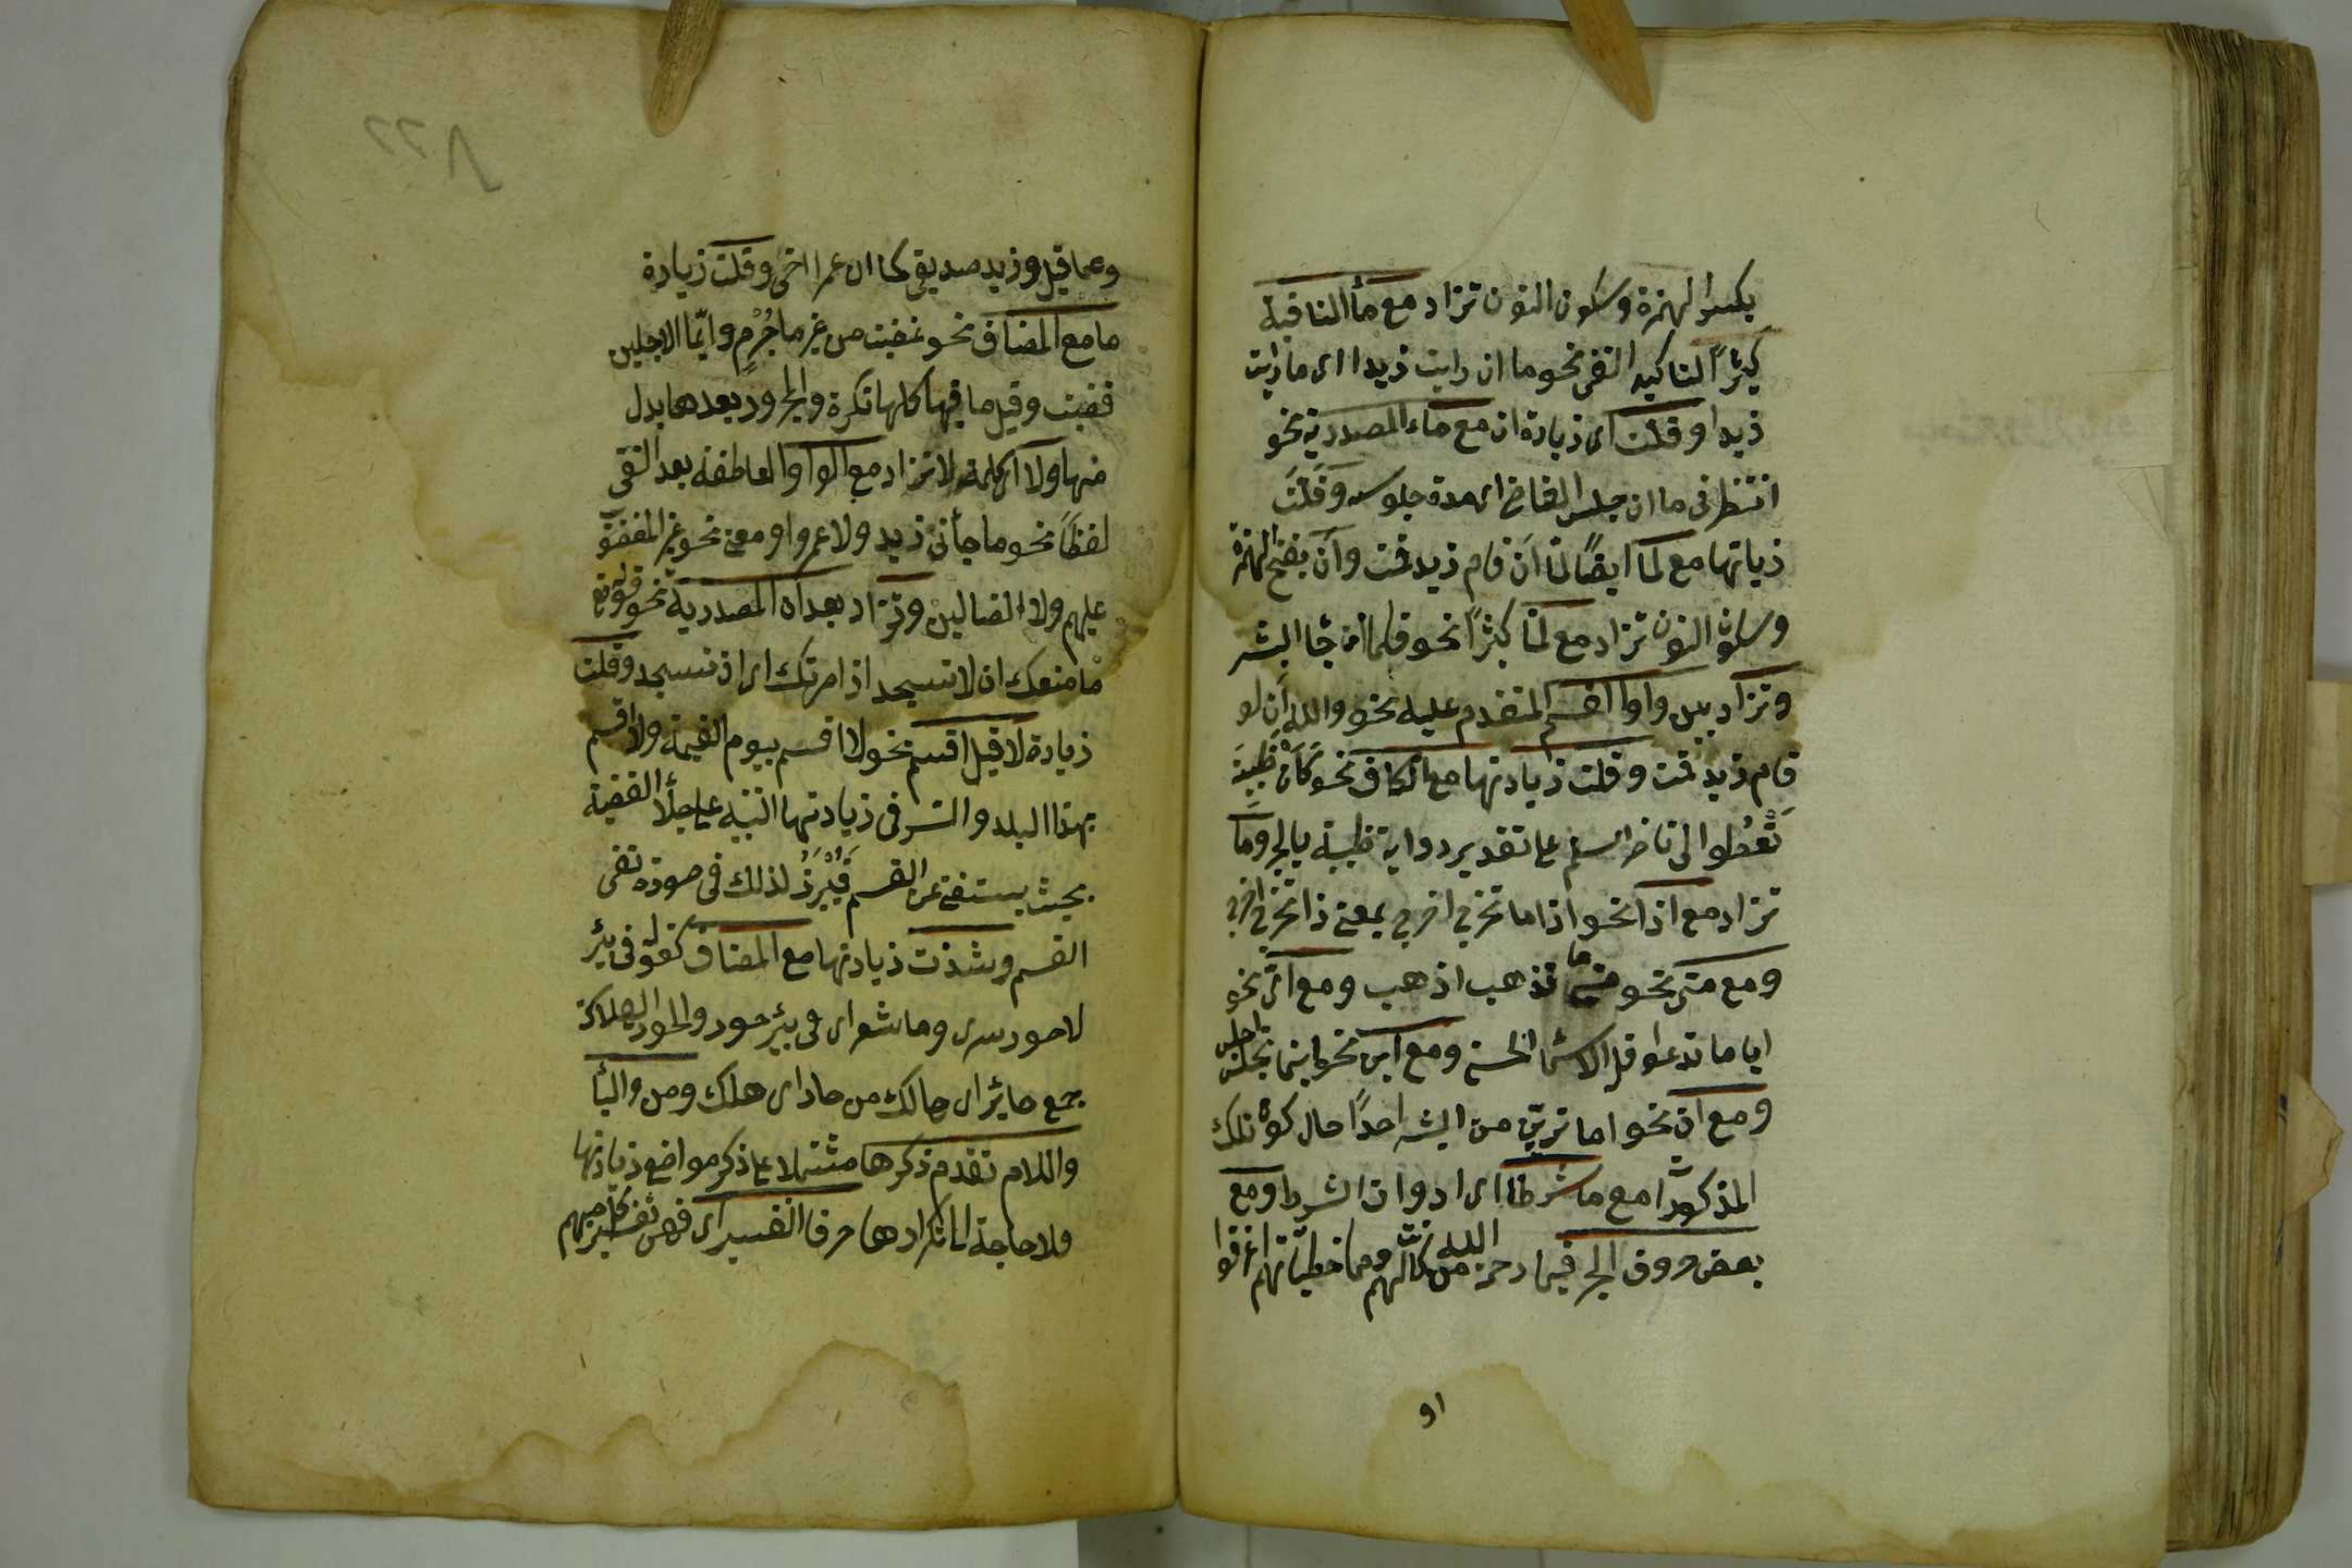 بكسر الهمزة وسكون النون تزاد مع ما النافية
كثيرًا لتاكيد النفى نحو ما ان رايت زيدا اى ما رايت
زيدا وقلت اى زيادة ان مع ماء المصدرية نحو
انتظرنى ما ان جلس القاضى اى مدة جلوسه وقَلّتَ
زياتها مع لمّا ايضًا لمّا اَن قام زيد قمت واَن بفتح الهمزة
وسكون النون تزاد مع لمّا كثيرًا نحو فلما ان جا البشير
وتزاد بين واو القسم المتقدم عليه نحو والله اَن لو
قام زيد قمت وقلت زيادتها مع الكاف نحو كَاَن ظبيةَ
تَعْطُوا الى ناضر السلم على تقدير رواية ظبية بالجر ومَا
تزاد مع اذا نحو اذا ما تخرج اخرج بمعنى اذا تخرج اخرج
ومع متى نحو متى ما تذهب اذهب ومع اىّ نحو
ايا ما تدعوا فله الاسما الحسنى ومع اين نحو اينما تجلس اجلس
ومع ان نحو اما تريّن من البشر احدًا حال كون تلك
المذكورَات مع ما شرطا اى ادوات الشرط ومع
بعض حروف الجر فبما رحمة من الله لنت لهم ومما خطيئاتهم اغرقوا
او
٧٢٢
وعما قيل وزيد صديقى كما ان عمرا اخى وقلت زيادة
ما مع المضاف نحو غضبت من غير ما جُرْمٍ وايّما الاجلين
قضيت وقيل ما فيها كلها نكرة والمجرور بعدها بدل
منها ولا اى كلمة لا تزاد مع الواو العاطفة بعد النفى
لفظًا نحو ما جأنى زيد ولا عمرو او معنى نحو غير المغضوب
عليهم ولا الضالين وتزاد بعد ان المصدرية نحو قوله تع
ما منعك ان لا تسجد اذ امرتك اى اذ تسجد وقلت
زيادة لا قبل اقسم نحو لا اقسم بيوم القيمة ولا اقسم
بهذا البلد والسر فى زيادتها التنبيه على جلأ القضية
بحيث يستغنى عن القسم فَيُبْرَزُ لذلك فى صورة نفى
القسم وشذت زيادتها مع المضاف كقوله فى بئر
لا حور سرى وما شعر اى فى بئر حور والحور الهلاكة
جمع حائر اى هالك من حار اى هلك ومن والبأ
واللام تقدم ذكرها مشتملا على ذكر مواضع زيادتها
فلا حاجة الى تكرارها حرفا التفسير اى فهى تفسير كل مبهم